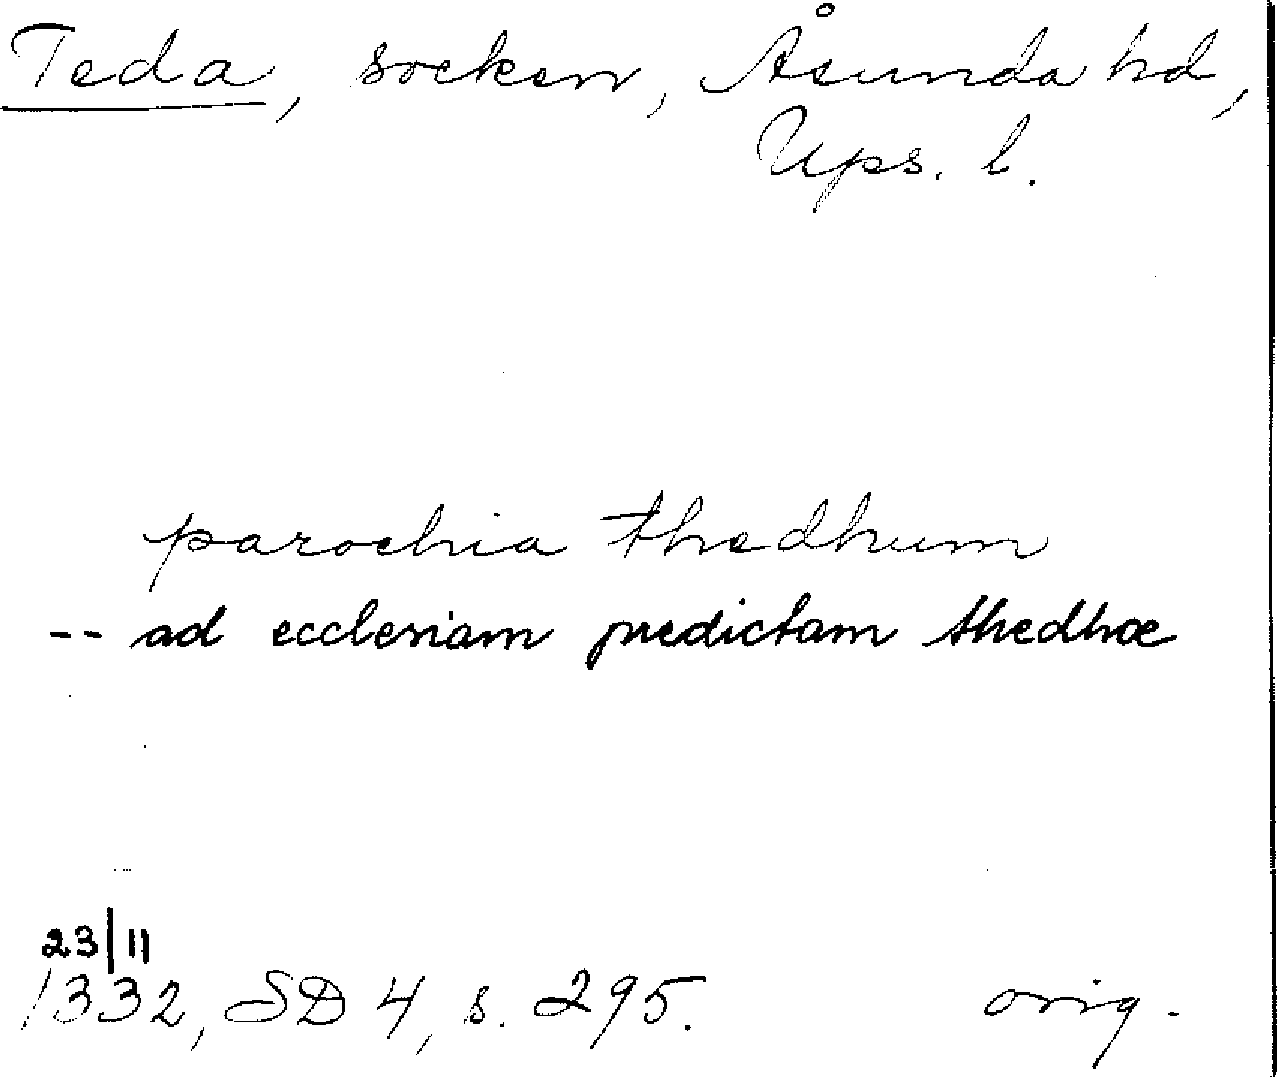 Teda, socken, Åsunda hd,
Ups. l.
parochia thedhum
-- ad ecclesiam predictam thedhæ
23/11
1332, SD 4, s. 295. orig.